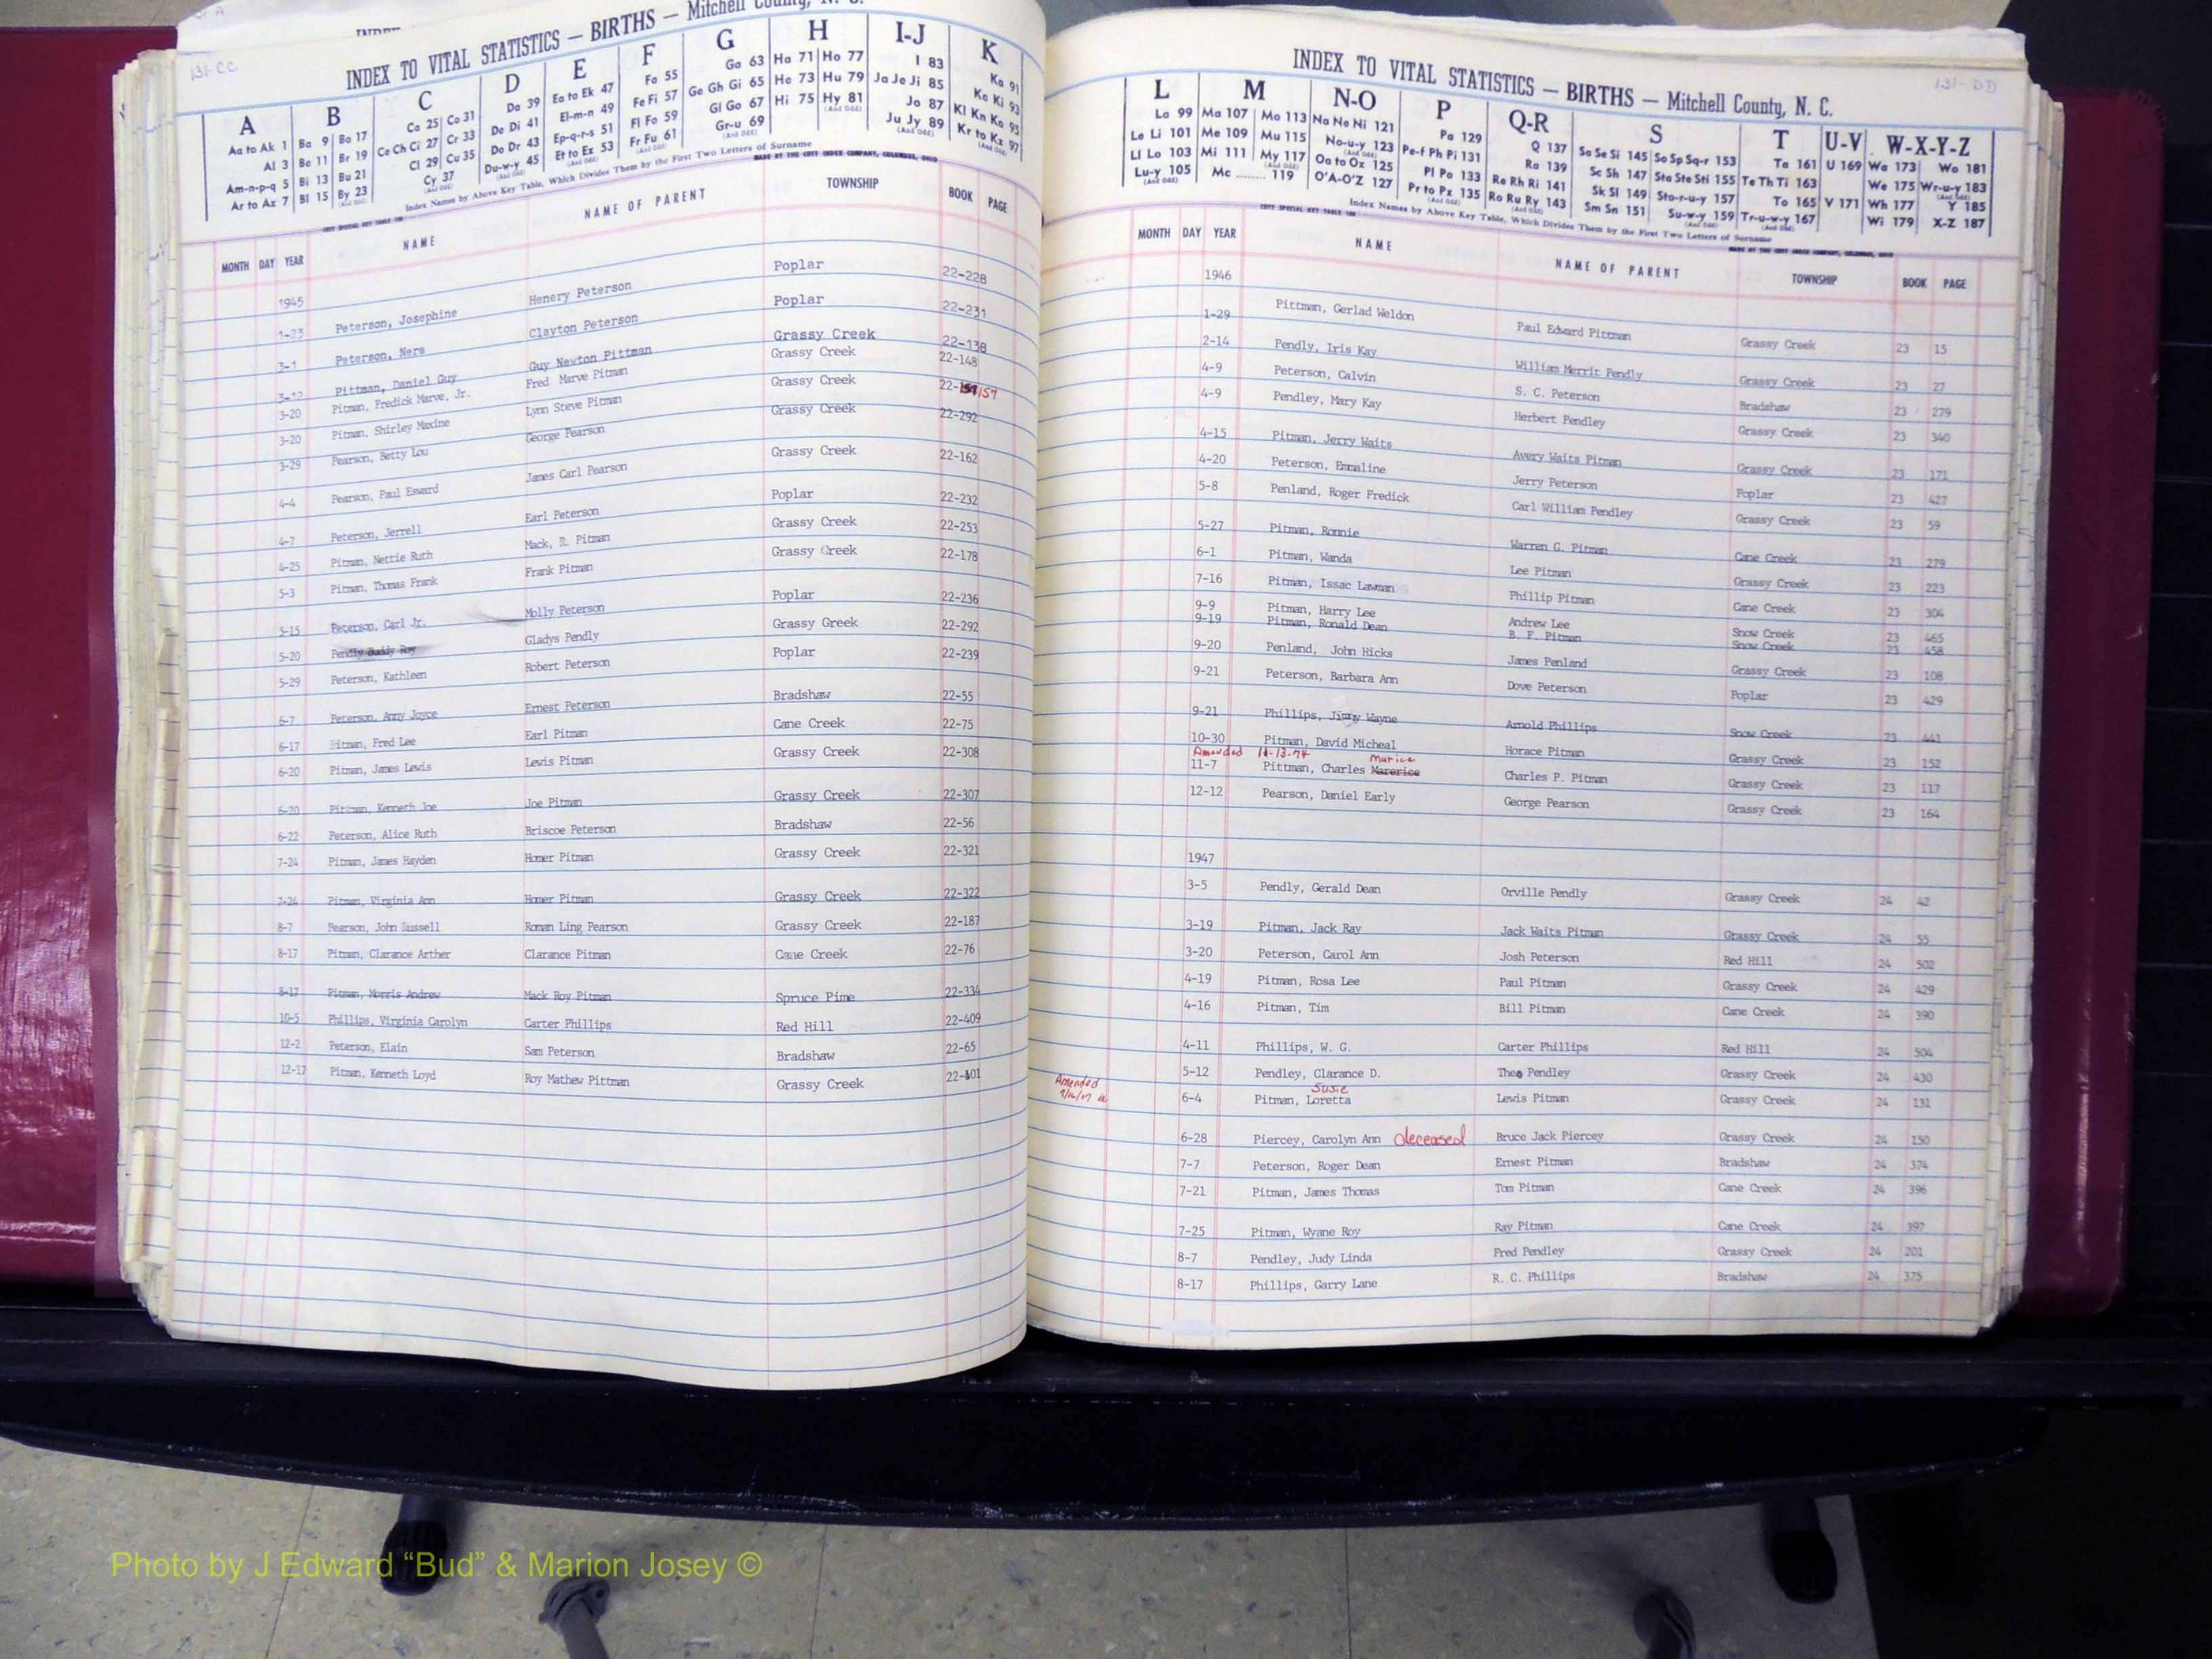 131-CC
INDEX TO VITAL STATISTICS — BIRTHS — Mitchell County, N. C.
A
Aa to Ak 1
Al 3
Am-n-p-q 5
Ar to Az 7
B
Ba 9 Bo 17
Be 11 Br 19
Bi 13 Bu 21
Bl 15 By 23
(And Odd)
C
Ca 25 Co 31
Ce Ch Ci 27 Cr 33
Cl 29 Cu 35
Cy 37
(And Odd)
D
Da 39
De Di 41
Do Dr 43
Du-w-y 45
E
Ea to Ek 47
El-m-n 49
Ep-q-r-s 51
Et to Ez 53
(And Odd)
F
Fa 55
Fe Fi 57
Fl Fo 59
Fr Fu 61
G
Ga 63
Ge Gh Gi 65
Gl Go 67
Gr-u 69
(And Odd)
H
Ha 71 Ho 77
He 73 Hu 79
Hi 75 Hy 81
(And Odd)
I-J
I 83
Ja Je Ji 85
Jo 87
Ju Jy 89
(And Odd)
K
Ka 91
Ke Ki 93
Kl Kn Ko 95
Kr to Kz 97
Index Names by Above Key Table, Which Divides Them by the First Two Letters of Surname
MADE BY THE COTT INDEX COMPANY, COLUMBUS, OHIO
MONTH DAY YEAR NAME NAME OF PARENT TOWNSHIP BOOK PAGE
1945
1-23 Peterson, Josephine Henery Peterson Poplar 22-228
3-1 Peterson, Nera Clayton Peterson Poplar 22-231
3-12 Pittman, Daniel Guy Guy Newton Pittman Grassy Creek 22-138
3-20 Pitman, Fredick Marve, Jr. Fred Marve Pitman Grassy Creek 22-148
3-20 Pitman, Shirley Maxine Lynn Steve Pitman Grassy Creek 22-157
3-29 Pearson, Betty Lou George Pearson Grassy Creek 22-292
4-4 Pearson, Paul Esward James Carl Pearson Grassy Creek 22-162
4-7 Peterson, Jerrell Earl Peterson Poplar 22-232
4-25 Pitman, Nettie Ruth Mack, R. Pitman Grassy Creek 22-253
5-3 Pitman, Thomas Frank Frank Pitman Grassy Creek 22-178
5-15 Peterson, Carl Jr. Molly Peterson Poplar 22-236
5-20 Pendly Buddy Roy Gladys Pendly Grassy Greek 22-292
5-29 Peterson, Kathleen Robert Peterson Poplar 22-239
6-7 Peterson, Anny Joyce Ernest Peterson Bradshaw 22-55
6-17 Pitman, Fred Lee Earl Pitman Cane Creek 22-75
6-20 Pitman, James Lewis Lewis Pitman Grassy Creek 22-308
6-20 Pitman, Kenneth Joe Joe Pitman Grassy Creek 22-307
6-22 Peterson, Alice Ruth Briscoe Peterson Bradshaw 22-56
7-24 Pitman, James Hayden Homer Pitman Grassy Creek 22-321
7-24 Pitman, Virginia Ann Homer Pitman Grassy Creek 22-322
8-7 Pearson, John Russell Roman Ling Pearson Grassy Creek 22-187
8-17 Pitman, Clarance Arther Clarance Pitman Cane Creek 22-76
8-17 Pitman, Morris Andrew Mack Roy Pitman Spruce Pime 22-334
10-5 Phillips, Virginia Carolyn Carter Phillips Red Hill 22-409
12-2 Peterson, Elain Sam Peterson Bradshaw 22-65
12-17 Pitman, Kenneth Loyd Roy Mathew Pittman Grassy Creek 22-401
131-DD
INDEX TO VITAL STATISTICS — BIRTHS — Mitchell County, N. C.
L
La 99
Le Li 101
Ll Lo 103
Lu-y 105
(And Odd)
M
Ma 107 Mo 113
Me 109 Mu 115
Mi 111 My 117
(And Odd)
Mc ........ 119
N-O
Na Ne Ni 121
No-u-y 123
(And Odd)
Oa to Oz 125
O'A-O'Z 127
P
Pa 129
Pe-f Ph Pi 131
Pl Po 133
Pr to Pz 135
(And Odd)
Q-R
Q 137
Ra 139
Re Rh Ri 141
Ro Ru Ry 143
(And Odd)
S
Sa Se Si 145 So Sp Sq-r 153
Sc Sh 147 Sta Ste Sti 155
Sk Sl 149 Sto-r-u-y 157
Sm Sn 151 Su-w-y 159
(And Odd)
T
Ta 161
Te Th Ti 163
To 165
Tr-u-w-y 167
(And Odd)
U-V
U 169
V 171
W-X-Y-Z
Wa 173 Wo 181
We 175 Wr-u-y 183
(And Odd)
Wh 177 Y 185
Wi 179 X-Z 187
Index Names by Above Key Table, Which Divides Them by the First Two Letters of Surname
MADE BY THE COTT INDEX COMPANY, COLUMBUS, OHIO
MONTH DAY YEAR NAME NAME OF PARENT TOWNSHIP BOOK PAGE
1946
1-29 Pittman, Gerlad Weldon Paul Edward Pittman Grassy Creek 23 15
2-14 Pendly, Iris Kay William Merrit Pendly Grassy Creek 23 27
4-9 Peterson, Calvin S. C. Peterson Bradshaw 23 279
4-9 Pendley, Mary Kay Herbert Pendley Grassy Creek 23 340
4-15 Pitman, Jerry Waits Avery Waits Pitman Grassy Creek 23 171
4-20 Peterson, Emmaline Jerry Peterson Poplar 23 427
5-8 Penland, Roger Fredick Carl William Pendley Grassy Creek 23 59
5-27 Pitman, Ronnie Warren G. Pitman Cane Creek 23 279
6-1 Pitman, Wanda Lee Pitman Grassy Creek 23 223
7-16 Pitman, Issac Lawman Phillip Pitman Cane Creek 23 304
9-9 Pitman, Harry Lee Andrew Lee Snow Creek 23 465
9-19 Pitman, Ronald Dean B. F. Pitman Snow Creek 23 458
9-20 Penland, John Hicks James Penland Grassy Creek 23 108
9-21 Peterson, Barbara Ann Dove Peterson Poplar 23 429
9-21 Phillips, Jimmy Wayne Arnold Phillips Snow Creek 23 441
10-30 Pitman, David Micheal Horace Pitman Grassy Creek 23 152
Amended 11-13-74 Murice
11-7 Pittman, Charles Marerice Charles P. Pitman Grassy Creek 23 117
12-12 Pearson, Daniel Early George Pearson Grassy Creek 23 164
1947
3-5 Pendly, Gerald Dean Orville Pendly Grassy Creek 24 42
3-19 Pitman, Jack Ray Jack Waits Pitman Grassy Creek 24 55
3-20 Peterson, Carol Ann Josh Peterson Red Hill 24 502
4-19 Pitman, Rosa Lee Paul Pitman Grassy Creek 24 429
4-16 Pitman, Tim Bill Pitman Cane Creek 24 390
4-11 Phillips, W. G. Carter Phillips Red Hill 24 504
5-12 Pendley, Clarance D. Theo Pendley Grassy Creek 24 430
Amended Susie
6-4 Pitman, Loretta Lewis Pitman Grassy Creek 24 131
6-28 Piercey, Carolyn Ann deceased Bruce Jack Piercey Grassy Creek 24 150
7-7 Peterson, Roger Dean Ernest Pitman Bradshaw 24 374
7-21 Pitman, James Thomas Tom Pitman Cane Creek 24 396
7-25 Pitman, Wyane Roy Ray Pitman Cane Creek 24 397
8-7 Pendley, Judy Linda Fred Pendley Grassy Creek 24 201
8-17 Phillips, Garry Lane R. C. Phillips Bradshaw 24 375
Photo by J Edward “Bud” & Marion Josey ©